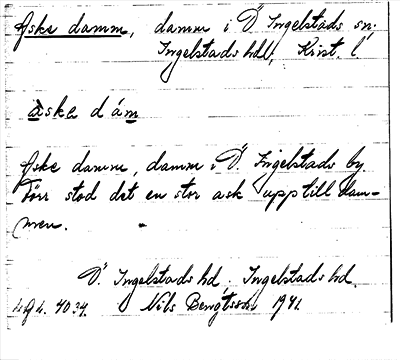 Äske damm, damm i Ö Ingelstads sn.
Ingelstads hdl, Krist. l.
äska dám
Äske damm, damm i Ö. Ingelstads by.
Förr stod det en stor ask upp till dam-
men.
Ö. Ingelstads hd, Ingelstads hd.
Nils Bengtsson 1941.